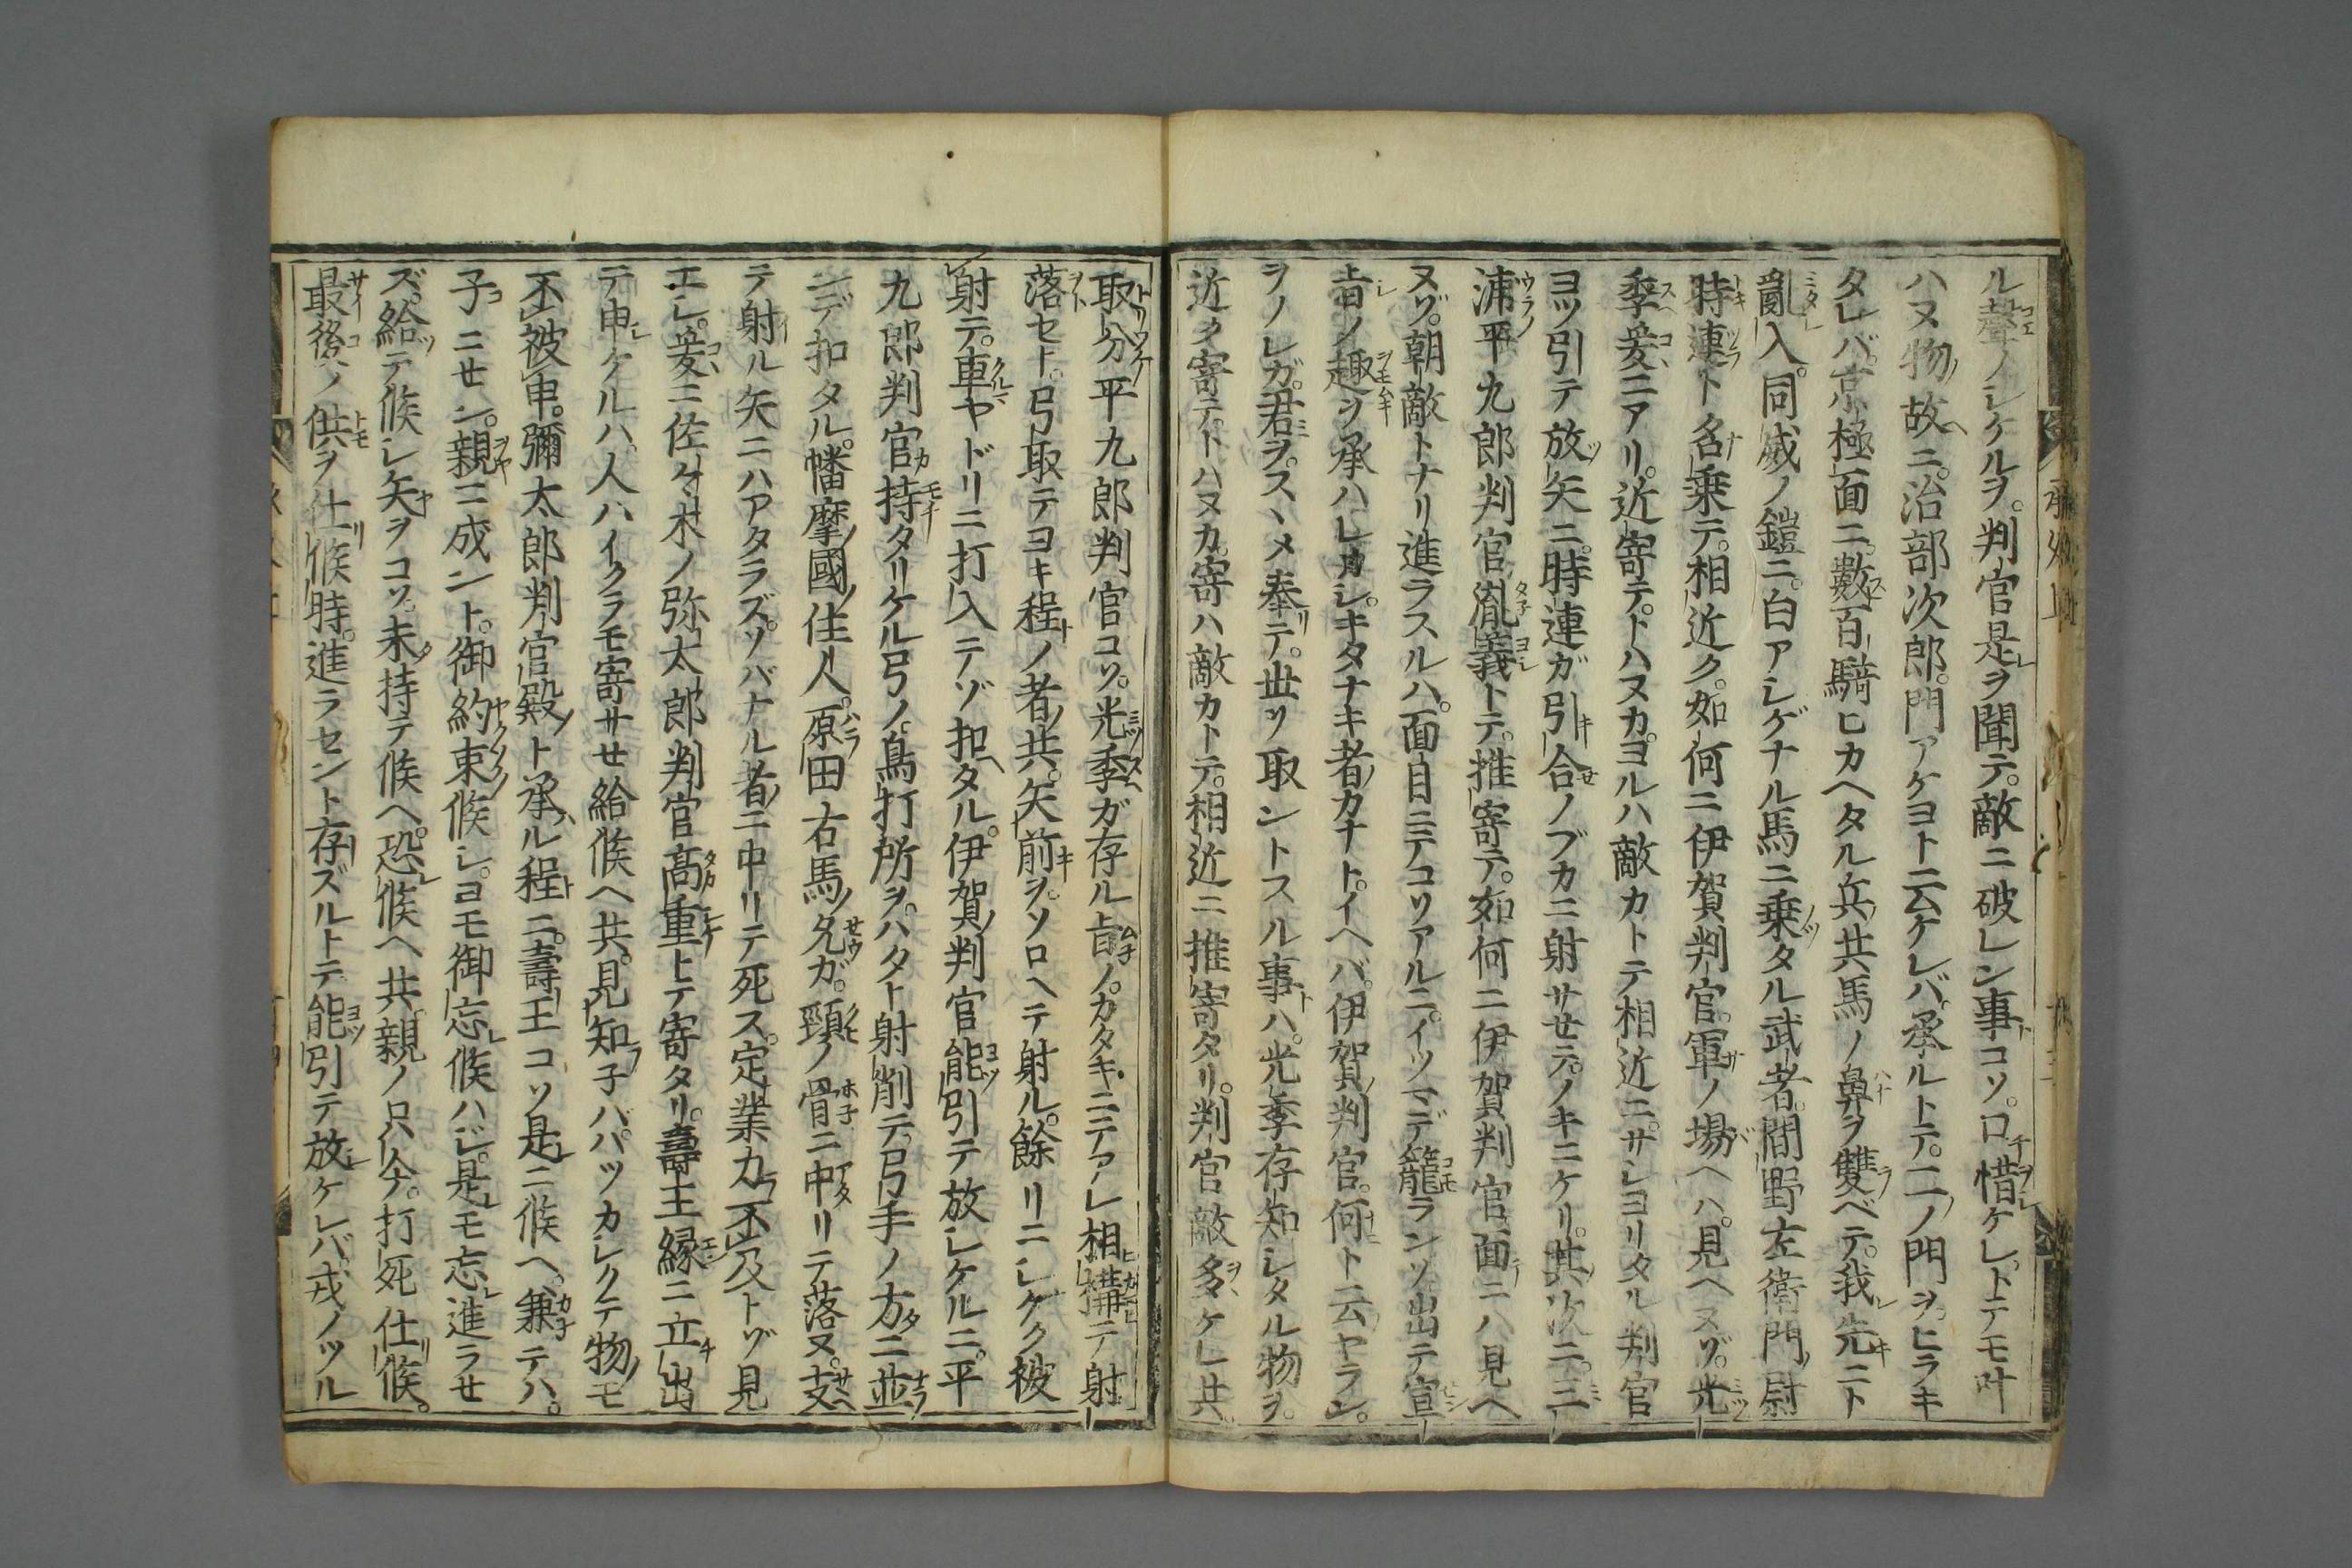 ル聲ノシケルヲ。判官是ヲ聞テ。敵ニ破レン事コソ。口惜ケレ。トテモ叶
ハヌ物故ニ。治部次郎。門アケヨト云ケレバ。承ルトテ。二ノ門ヲ。ヒラキ
タレバ。京極面ニ。數百騎ヒカヘタル兵共馬ノ鼻ヲ雙ベテ。我先ニト
亂入。同威ノ鎧ニ。白アシゲナル馬ニ乗タル武者。間野左衛門尉
時連ト名乗テ。相近ク。如何ニ伊賀判官。軍ノ場ヘハ。見ヘヌゾ。光
季爰ニアリ。近寄テ。トハヌカ。ヨルハ敵カトテ相近ニ。サシヨリタル判官
ヨツ引テ放矢ニ。時連ガ引合ノブカニ射サセテ。ノキニケリ。其次ニ。三
浦平九郎判官胤義トテ。推寄テ。如何ニ伊賀判官面ニハ見ヘ
ヌゾ。朝敵トナリ進ラスルハ。面目ニテコソアルニ。イツマデ籠ランソ出テ宣
旨ノ趣ヲ承ハレカシ。キタナキ者カナト。イヘバ。伊賀判官。何ト云ヤラン。
ヲノレガ。君ヲ。スヽメ奉テ。世ヲ取ントスル事ハ。光季存知シタル物ヲ。
近ク寄テ。トハヌカ。寄ハ敵カトテ。相近ニ推寄タリ。判官敵多ケレ共
取分平九郎判官コソ。光季ガ存ル旨ノ。カタキニテアレ相構テ射
落セト。弓取テヨキ程ノ者共。矢前ヲ。ソロヘテ射ル。餘リニシケク被
射テ。車ヤドリニ打入テゾ扣タル。伊賀判官能引テ放レケルニ。平
九郎判官持タリケル弓ノ。鳥打所ヲ。ハタト射削テ。弓手ノ方ニ並
ンデ扣タル。幡摩國住人。原田右馬允ガ。頸ノ骨ニ中リテ落ヌ。支
テ射ル矢ニハアタラズ。ソバナル者ニ中リテ死ス。定業力不及トゾ見
エシ。爰ニ佐々木ノ弥太郎判官高重トテ寄タリ。壽王縁ニ立出
テ申ケルハ。人ハイクラモ寄サセ給候ヘ共。見知子バ。ハツカシクテ物モ
不被申。彌太郎判官殿ト承ル程ニ。壽王コソ是ニ候ヘ。兼テハ。
子ニセン。親ニ成ント。御約束候シ。ヨモ御忘候ハジ。是モ忘進ラセ
ズ。給テ候シ矢ヲコソ。未持テ候ヘ。恐候ヘ共。親ノ只今。打死仕候。
最後ノ供ヲ仕候時。進ラセント存ズルトテ能引テ放ケレバ。戎ノツル